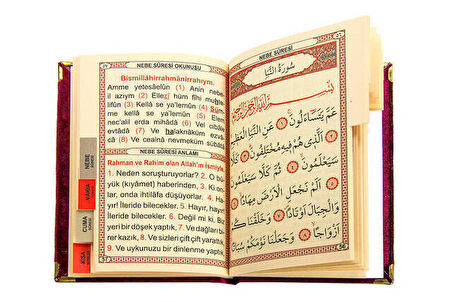 NEBE SÛRESİ OKUNUŞU
Bismillâhirrahmânirrahıym.
Amme yetesâelûn (1) Anin nebe-
il azıym (2) Ellezî hüm fîhi muhtel
lifûn (3) Kellâ se ya'lemûn (4) Süm
Kellâ se ya'lemûn (5) Elem
nec'alil erda mihâdâ (6) Vel cibâle
evtâdâ (7) Ve halaknâküm ezvâc
(8) Ve cealnâ nevmeküm sübât
NEBE SÛRESİ ANLAMI
Rahman ve Rahim olan Allah'ın ismiyle
1. Neden soruşturuyorlar? 2. O bü
yük (kıyâmet) haberinden, 3. Ki on-
lar, onda ihtilafa düşüyorlar. 4. Ha
yır! İleride bilecekler. 5. Hayır, hayır
İleride bilecekler. 6. Değil mi ki, Biz
yeri bir döşek yaptık, 7. Ve dağları
rer kazık, 8. Ve sizleri çift çift yarattık
9. Ve uykunuzu bir dinlenme yaptık
NEBE
VAKIA
CUMA
NEBE SÛRESİ
سُورَةُ النَّبَأِ
بِسْمِ اللَّهِ الرَّحْمَنِ الرَّحِيمِ
عَمَّ يَتَسَاءَلُونَ ﴿١﴾ عَنِ النَّبَأِ الْعَظِيمِ
﴿٢﴾ الَّذِي هُمْ فِيهِ مُخْتَلِفُونَ ﴿٣﴾ كَلَّا
سَيَعْلَمُونَ ﴿٤﴾ ثُمَّ كَلَّا سَيَعْلَمُونَ
﴿٥﴾ أَلَمْ نَجْعَلِ الْأَرْضَ مِهَادًا ﴿٦﴾
وَالْجِبَالَ أَوْتَادًا ﴿٧﴾ وَخَلَقْنَاكُمْ
أَزْوَاجًا ﴿٨﴾ وَجَعَلْنَا نَوْمَكُمْ سُبَاتًا